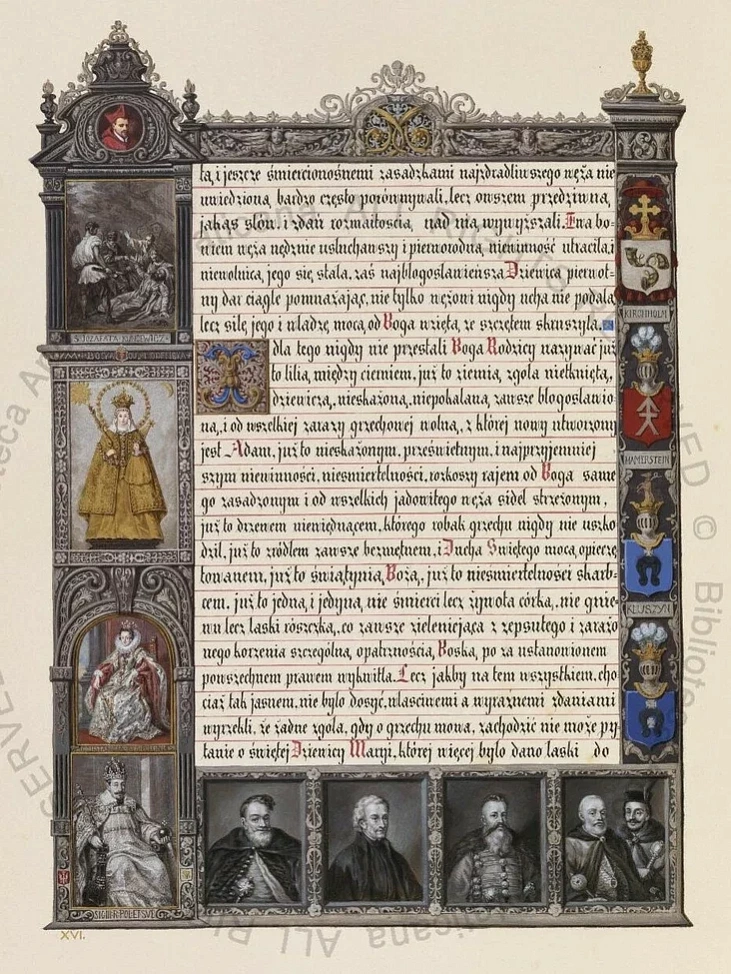 tą, i jeszcze śmiercionośnemi zasadzkami najzdradliwszego węża nie
uwiedzioną, bardzo często porównywali, lecz owszem przedziwną,
jakąś słów, i zdań rozmaitością, nad nią wywyższali. Ewa bo-
wiem węża nędznie usłuchawszy i pierworodną, niewinność utraciła, i
niewolnicą, jego się stała, zaś najbłogosławieńsza Dziewica pierwot-
ny dar ciągle pomnażając, nie tylko wężowi nigdy ucha nie podała
lecz siłę jego i władzę mocą, od Boga wziętą, ze szczętem skruszyła.
I dla tego nigdy nie przestali Boga Rodzicy nazywać już
to lilią, między cierniem, już to ziemią, zgoła nietkniętą,
dziewiczą, nieskażoną, niepokalaną, zawsze błogosławio-
ną, i od wszelkiej zarazy grzechowej wolną, z której nowy utworzony
jest Adam, już to nieskażonym, prześwietnym, i najprzyjemniej
szym niewinności, nieśmiertelności, rozkoszy rajem od Boga same
go zasadzonym i od wszelkich jadowitego węża sideł strzeżonym,
już to drzewem niewiędnącem, którego robak grzechu nigdy nie uszko
dził, już to źródłem zawsze bezmętnem, i Ducha Świętego mocą, opieczę
towanem, już to świątynią, Bożą, już to nieśmiertelności skarb-
cem, już to jedną, i jedyną, nie śmierci lecz żywota córką, nie gnie-
wu lecz łaski różczką, co zawsze zieleniejąca z zepsutego i zarażo
nego korzenia szczególną, opatrznością, Boską, po za ustanowionem
powszechnem prawem wykwitła. Lecz jakby na tem wszystkiem, cho-
ciaż tak jasnem, nie było dosyć, właściwemi a wyraźnemi zdaniami
wyrzekli, że żadne zgoła, gdy o grzechu mowa, zachodzić nie może py-
tanie o świętej Dziewicy Maryi, której więcej było dano łaski do
KIRCHHOLM
HAMERSTEIN
KŁUSZYN
SIGI III R. POL. ET SVE
XVI.
ALL RIGHTS RESERVED © Biblioteca Apostolica Vaticana